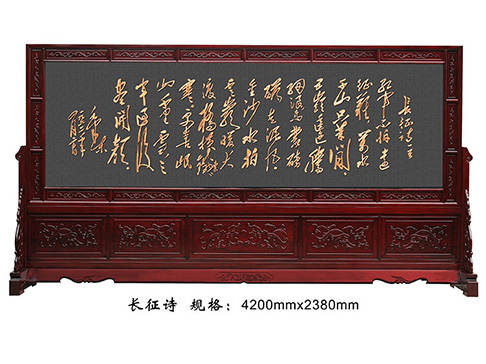 长征诗一首
红军不怕远
征难万水
千山只等闲
五岭逶迤腾
细浪乌蒙磅
礴走泥丸
金沙水拍
云崖暖大
渡桥横铁索
寒更喜岷
山千里雪三
军过后
尽开颜
毛泽东
长征诗 规格：4200mmx2380mm